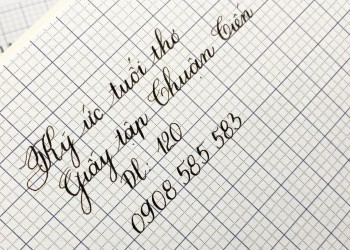 Ký ức tuổi thơ
Giấy tập Chuẩn Tiến
DL: 120
0908 585 583